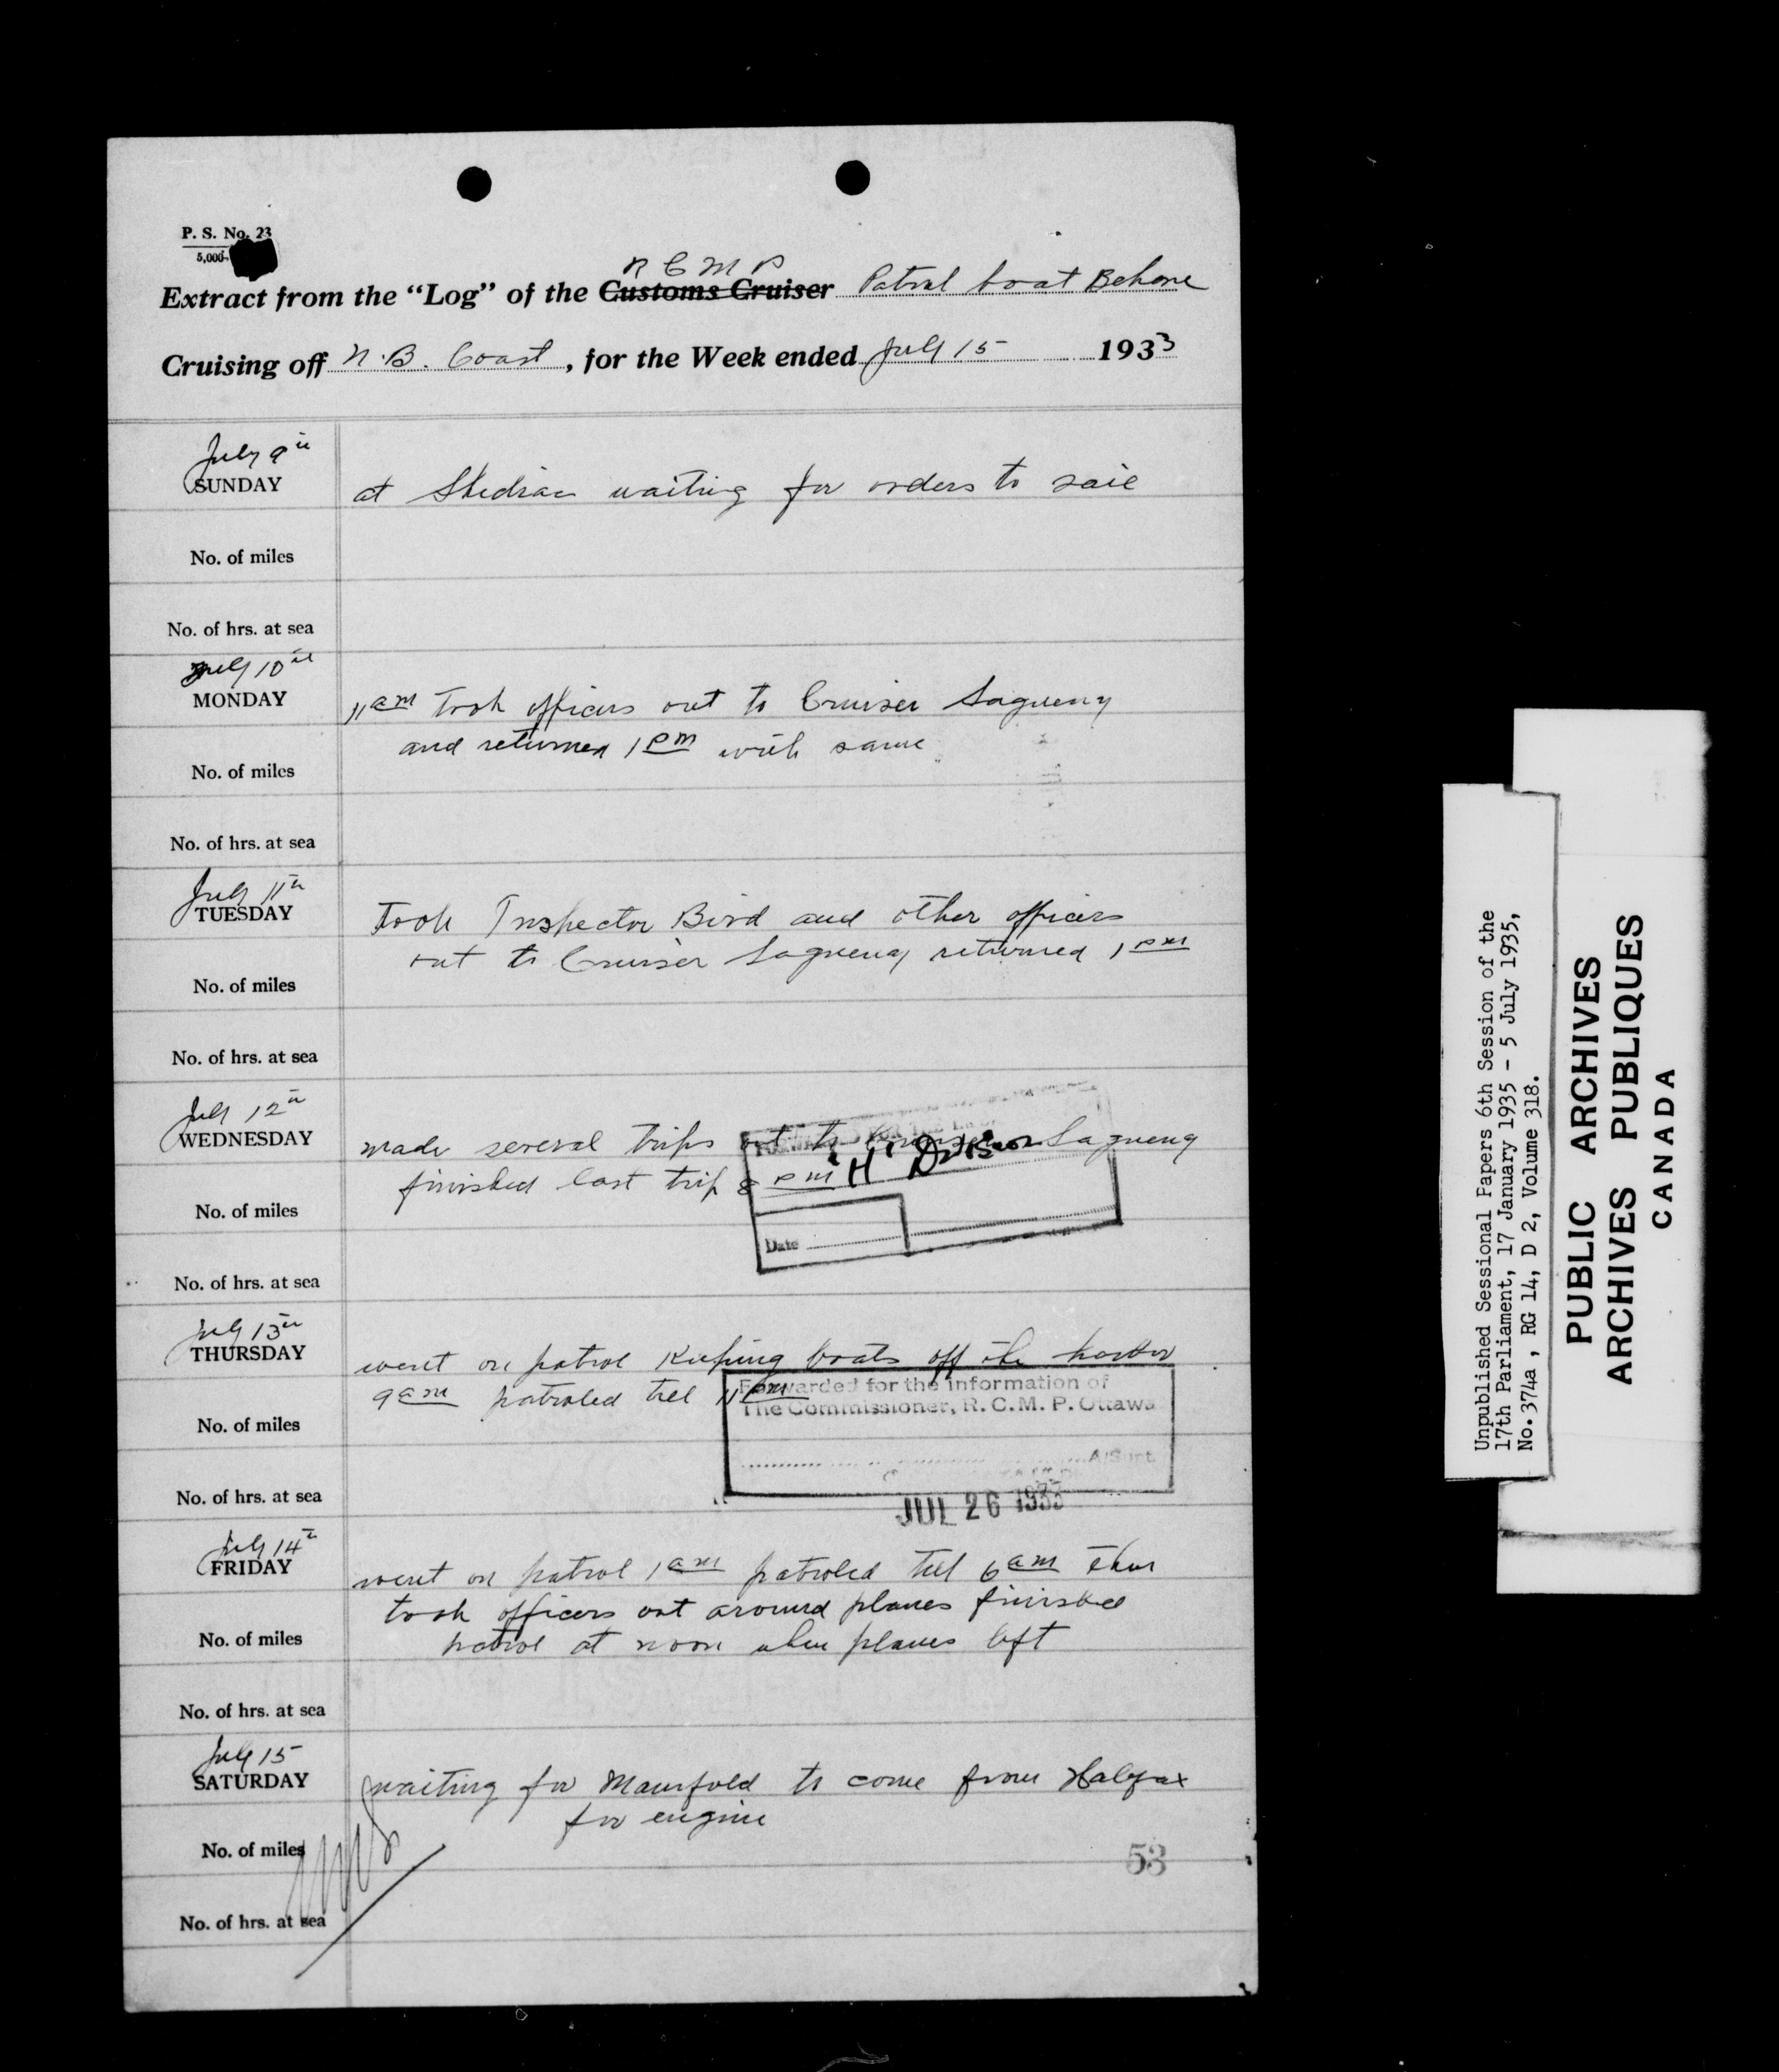 P. S. No. 23
5,000-
R C M P
Extract from the “Log” of the Customs Cruiser Patrol boat Behave
Cruising off N.B. Coast, for the Week ended July 15 1933
July 9th
SUNDAY
at Shediac waiting for orders to sail
No. of miles
No. of hrs. at sea
July 10th
MONDAY
11 am took officers out to Cruiser Sagueny
and returned 1 pm with same
No. of miles
No. of hrs. at sea
July 11th
TUESDAY
Took Inspector Bird and other officers
out to Cruiser Sagueny returned 1 pm
No. of miles
No. of hrs. at sea
July 12th
WEDNESDAY
made several trips out to Cruiser Sagueny
finished last trip 8 pm
"H" Division
No. of miles
Date
No. of hrs. at sea
July 13th
THURSDAY
went on patrol Keeping boats off the harbor
9 am patroled till 11 pm
Forwarded for the information of
The Commissioner, R. C. M. P. Ottawa
No. of miles
A/Supt.
No. of hrs. at sea
JUL 26 1933
July 14th
FRIDAY
went on patrol 1 am patroled till 6 am then
took officers out around planes finished
patrol at noon when planes left
No. of miles
No. of hrs. at sea
July 15
SATURDAY
waiting for Manifold to come from Halifax
for engine
No. of miles
53
No. of hrs. at sea
Unpublished Sessional Papers 6th Session of the
17th Parliament, 17 January 1935 - 5 July 1935,
No. 374a , RG 14, D 2, Volume 318.
PUBLIC ARCHIVES
ARCHIVES PUBLIQUES
CANADA